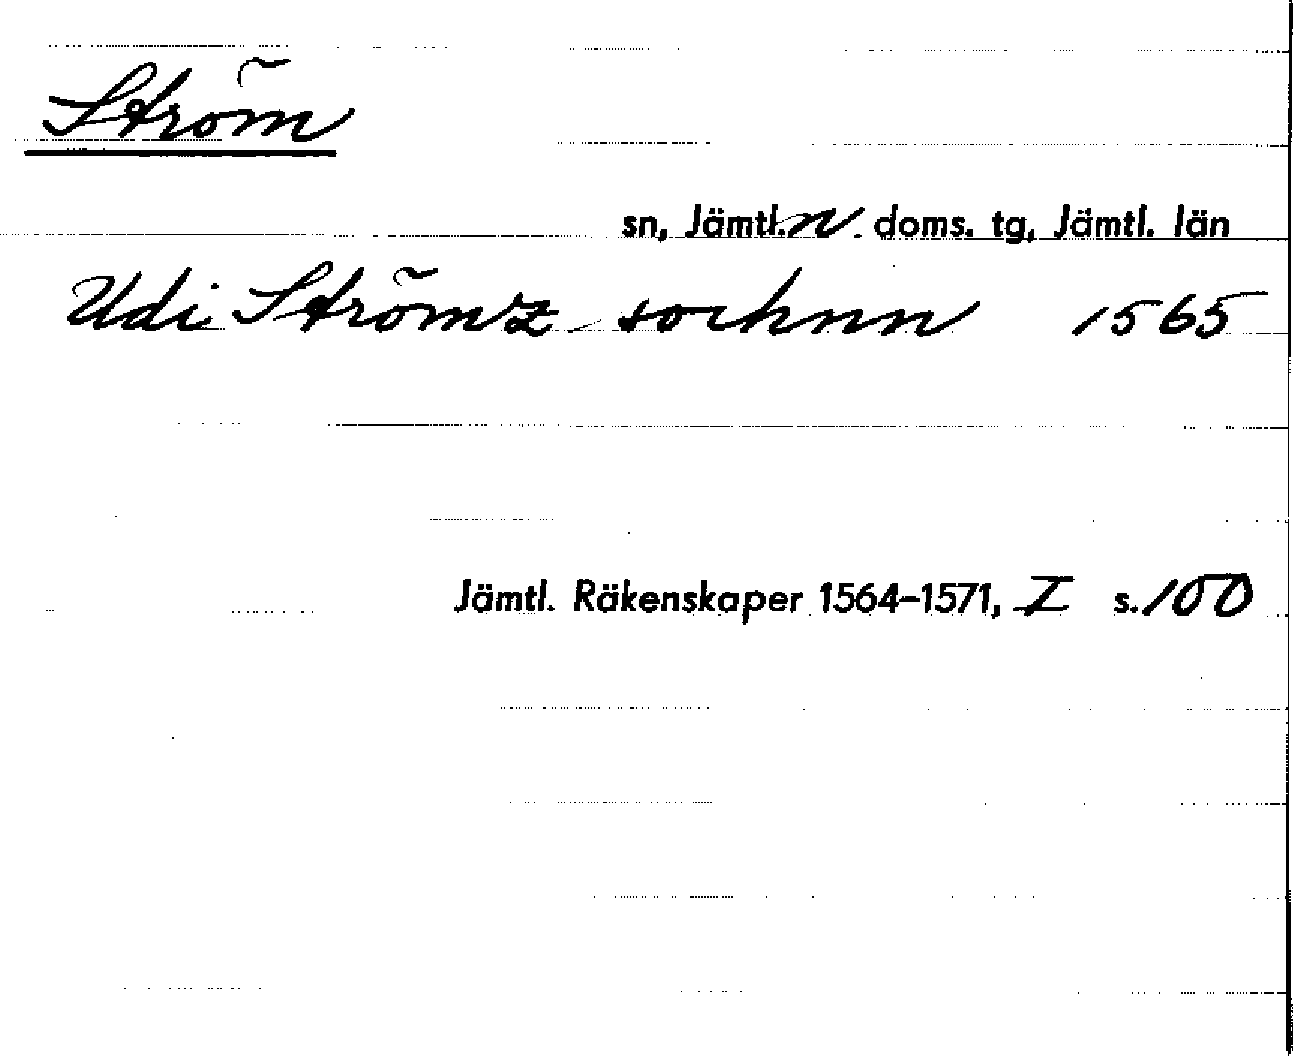 Ström
sn, Jämtl. n. doms. tg, Jämtl. län
Udi Strömz sochnn 1565
Jämtl. Räkenskaper 1564-1571, I s. 100